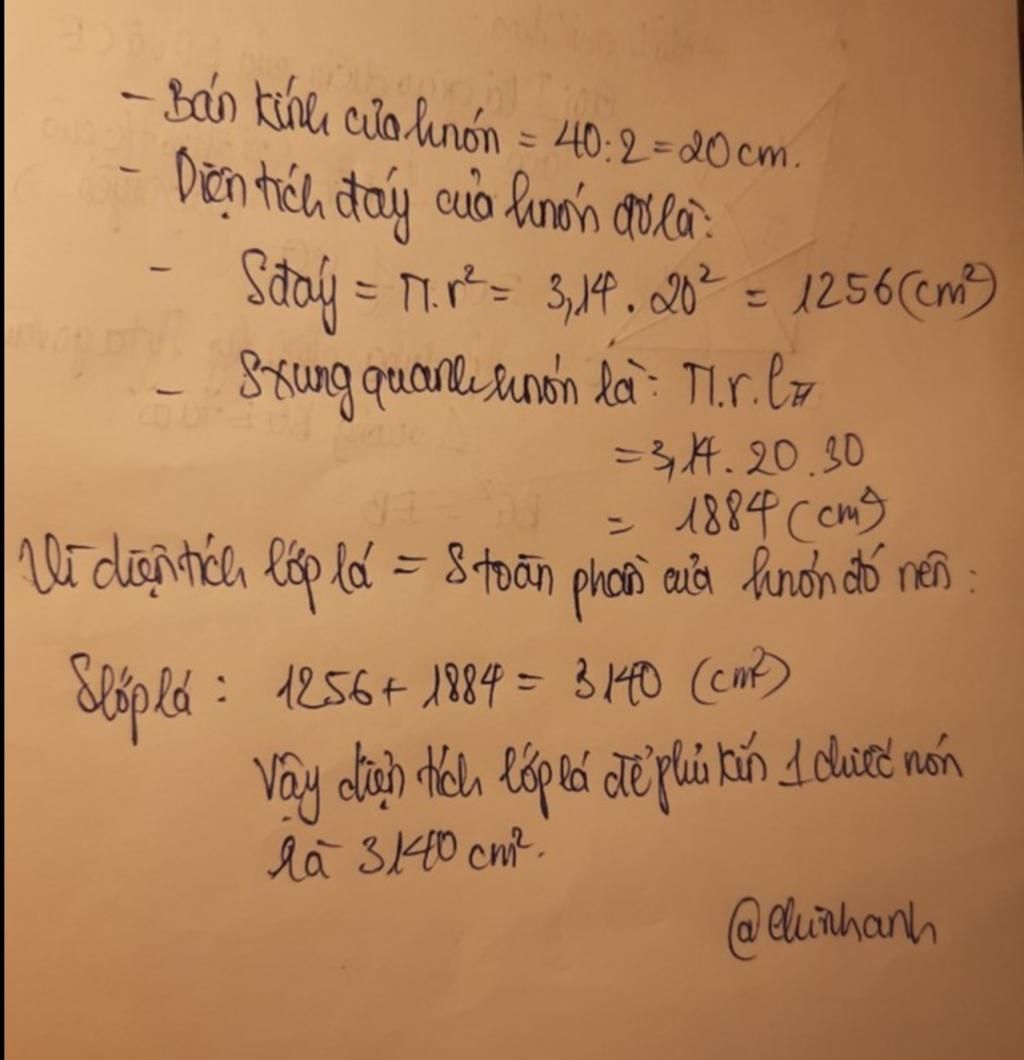 - Bán kính của hnón = 40:2 = 20 cm.
- Diện tích đáy của hnón đó là:
- Sđáy = π.r² = 3,14 . 20² = 1256 (cm²)
- Sxung quanh hnón là: π.r.l
= 3,14 . 20 . 30
= 1884 (cm²)
Vì diện tích lớp lá = S toàn phần của hnón đó nên :
Slớp lá : 1256 + 1884 = 3140 (cm²)
Vậy diện tích lớp lá để phủ kín 1 chiếc nón
là 3140 cm².